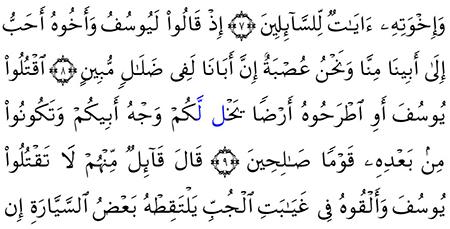 وَإِخْوَتِهِۦٓ ءَايَٰتٌ لِّلسَّآئِلِينَ ﴿٧﴾ إِذْ قَالُوا۟ لَيُوسُفُ وَأَخُوهُ أَحَبُّ
إِلَىٰٓ أَبِينَا مِنَّا وَنَحْنُ عُصْبَةٌ إِنَّ أَبَانَا لَفِى ضَلَٰلٍ مُّبِينٍ ﴿٨﴾ ٱقْتُلُوا۟
يُوسُفَ أَوِ ٱطْرَحُوهُ أَرْضًا يَخْلُ لَكُمْ وَجْهُ أَبِيكُمْ وَتَكُونُوا۟
مِنۢ بَعْدِهِۦ قَوْمًا صَٰلِحِينَ ﴿٩﴾ قَالَ قَآئِلٌ مِّنْهُمْ لَا تَقْتُلُوا۟
يُوسُفَ وَأَلْقُوهُ فِى غَيَٰبَتِ ٱلْجُبِّ يَلْتَقِطْهُ بَعْضُ ٱلسَّيَّارَةِ إِن